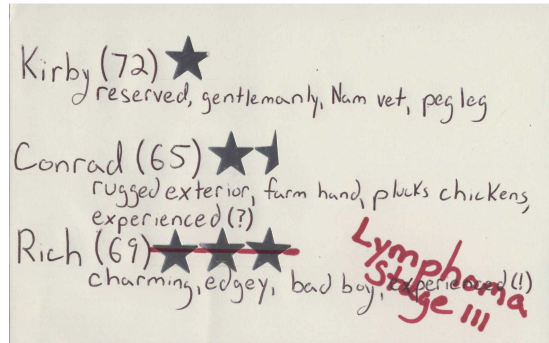 Kirby (72)
reserved, gentlemanly, Nam vet, peg leg
Conrad (65)
rugged exterior, farm hand, plucks chickens,
experienced (?)
Rich (69)
charming, edgey, bad boy, experienced (!)
Lymphoma
Stage III